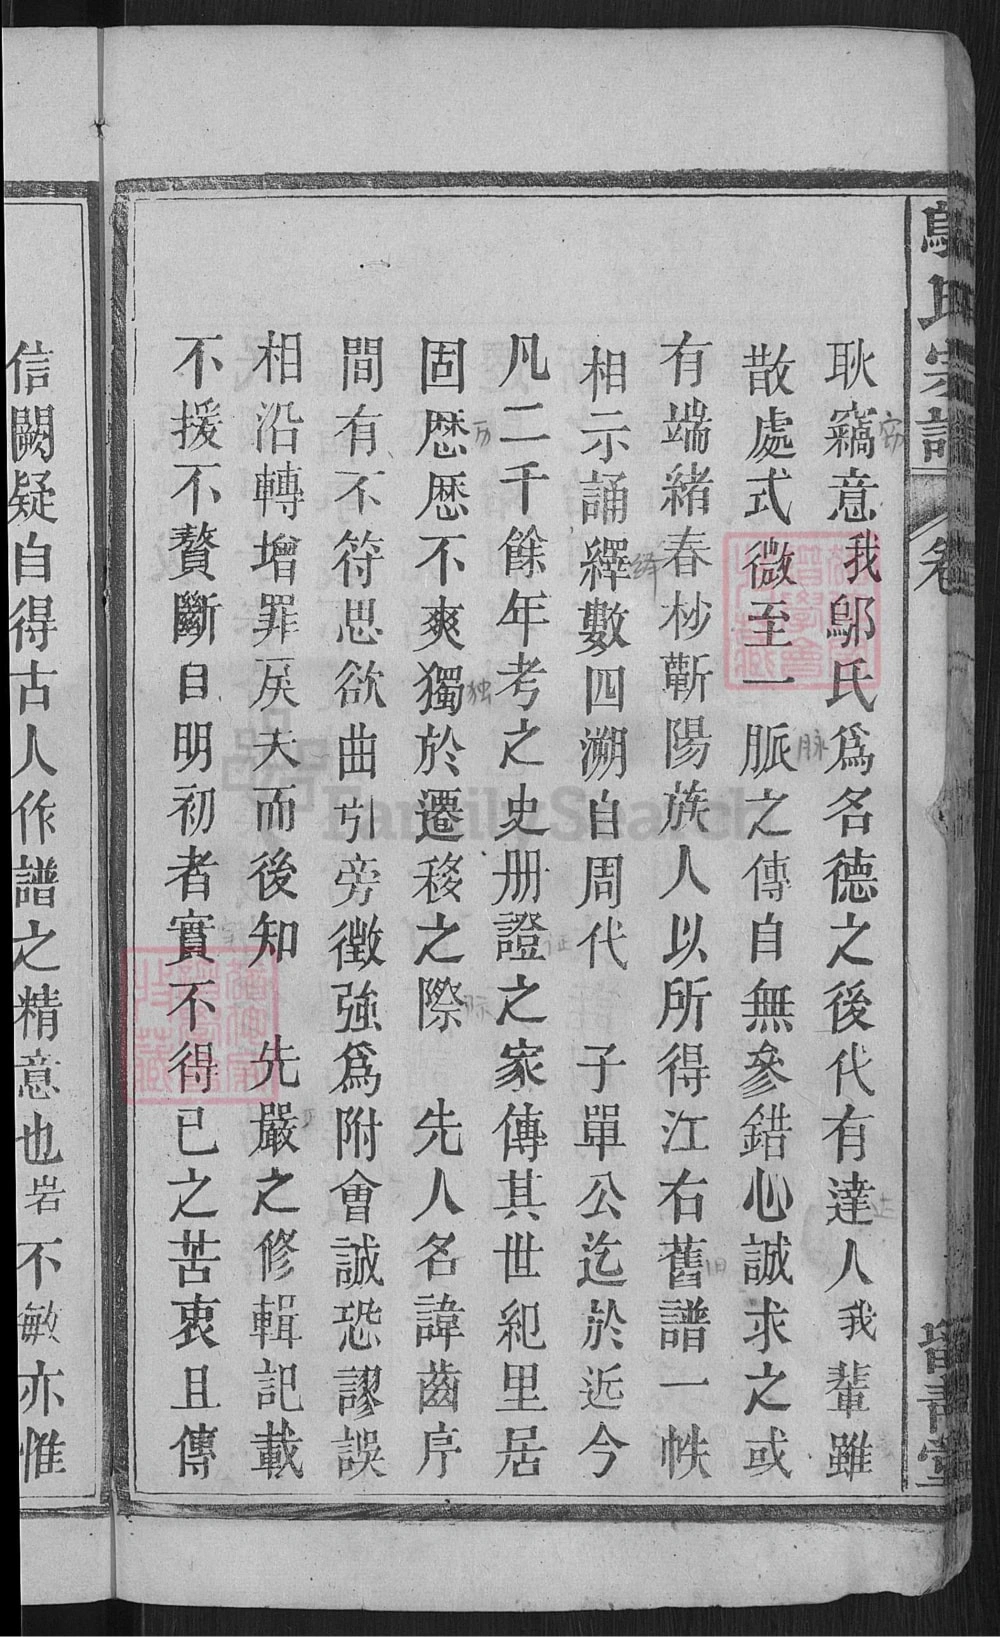 鄔氏宗譜
卷
耿竊意我鄔氏爲名德之後代有達人我輩雖
散處式微至一脈之傳自無參錯心誠求之或
有端緒春杪蘄陽族人以所得江右舊譜一帙
相示誦繹數四溯自周代 子單公迄於近今
凡二千餘年考之史册證之家傳其世紀里居
固歷歷不爽獨於遷移之際 先人名諱齒序
間有不符思欲曲引旁徵強爲附會誠恐謬誤
相沿轉增罪戾夫而後知 先嚴之修輯記載
不援不贅斷自明初者實不得已之苦衷且傳
信闕疑自得古人作譜之精意也岩不敏亦惟
FamilySearch